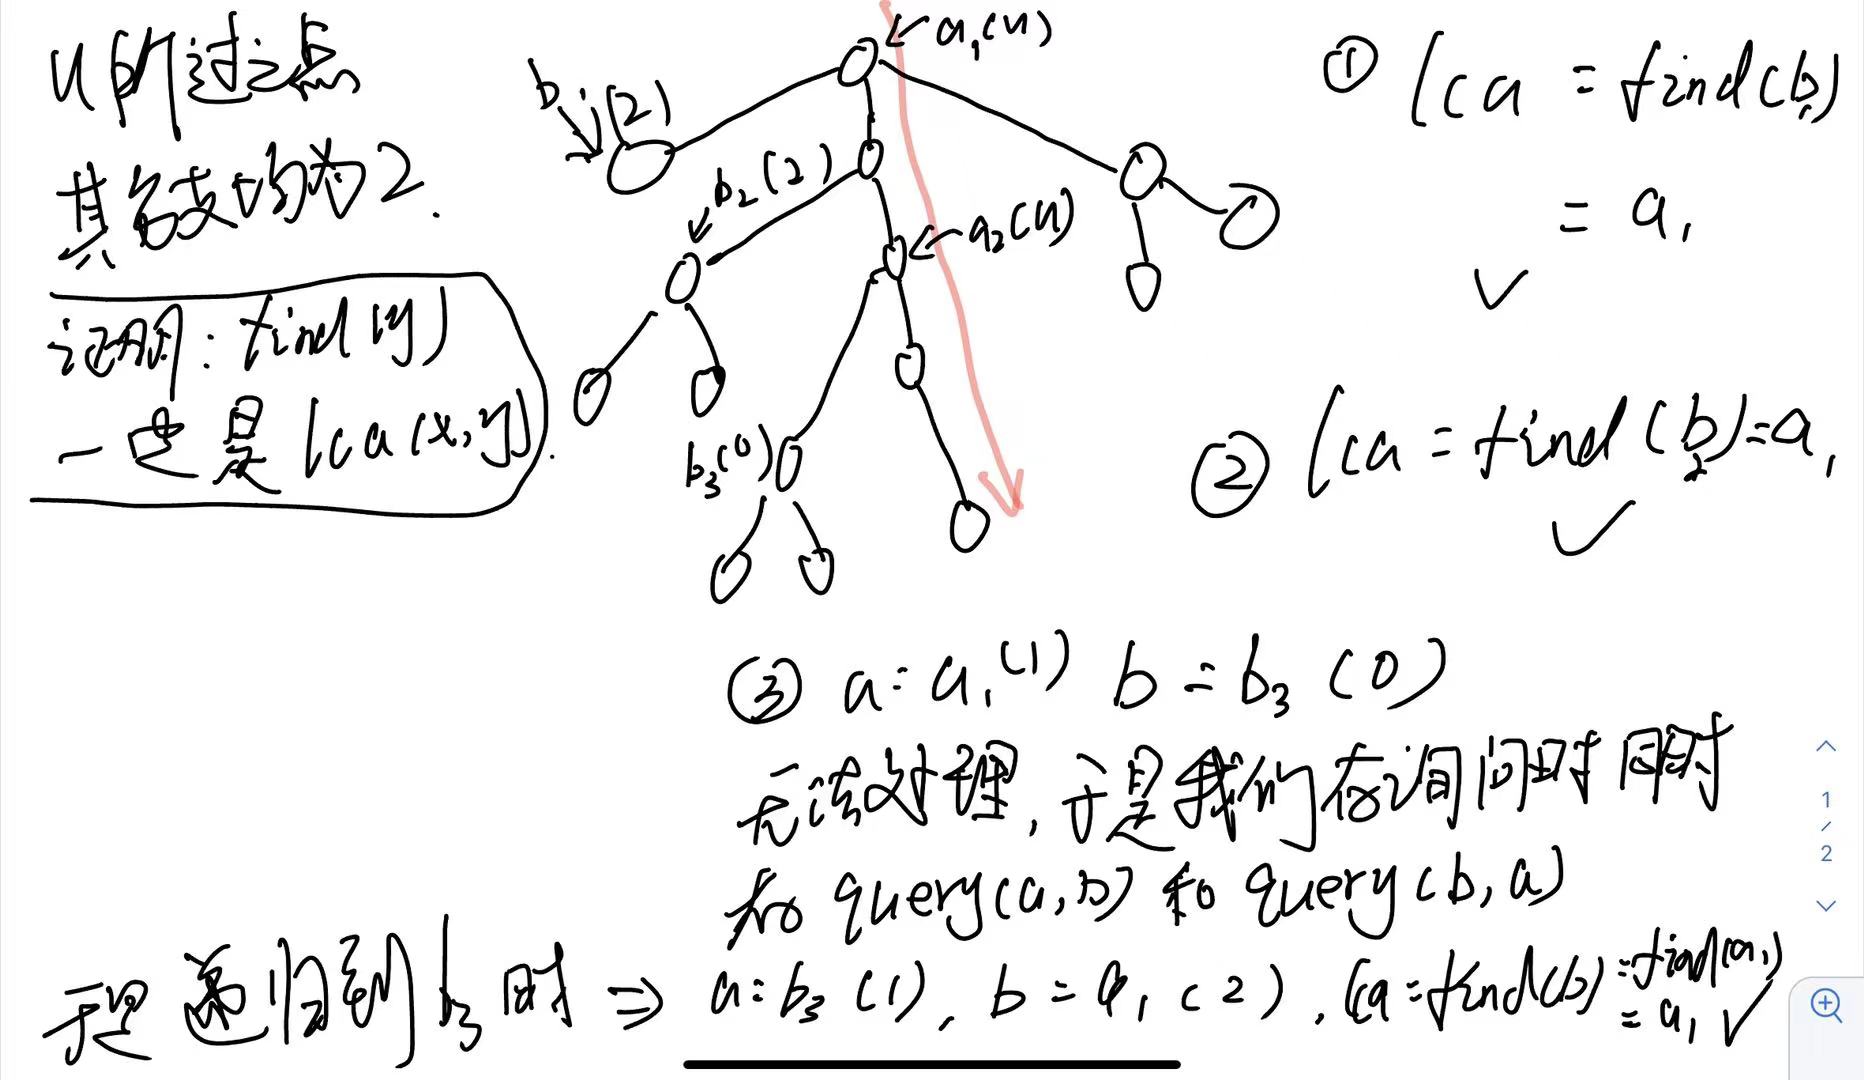 u 所过之点
其各支均为2.
证明: find(y)
一定是 lca(x,y).
a₁(u)
b₁(2)
b₂(2)
a₂(u)
b₃(0)
① lca = find(b₁)
= a₁
✓
② lca = find(b₂)=a₁
✓
③ a=a₁(1) b=b₃(0)
无法处理,于是我们存询问时同时
存 query(a,b) 和 query(b,a)
于是递归到b₃时 ⇒ a=b₃(1), b=a₁(2), lca=find(b)=find(a₁)
=a₁ ✓
1
/
2